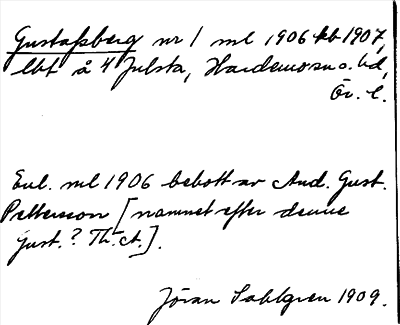 Gustafsberg nr 1 ml 1906 kb 1907,
lbt å 4 Julsta, Hardemo sn o. hd,
Ör. l.
Enl. ml 1906 bebott av And. Gust.
Pettersson [namnet efter denne
Gust.? Th. A.].
Jöran Sahlgren 1909.